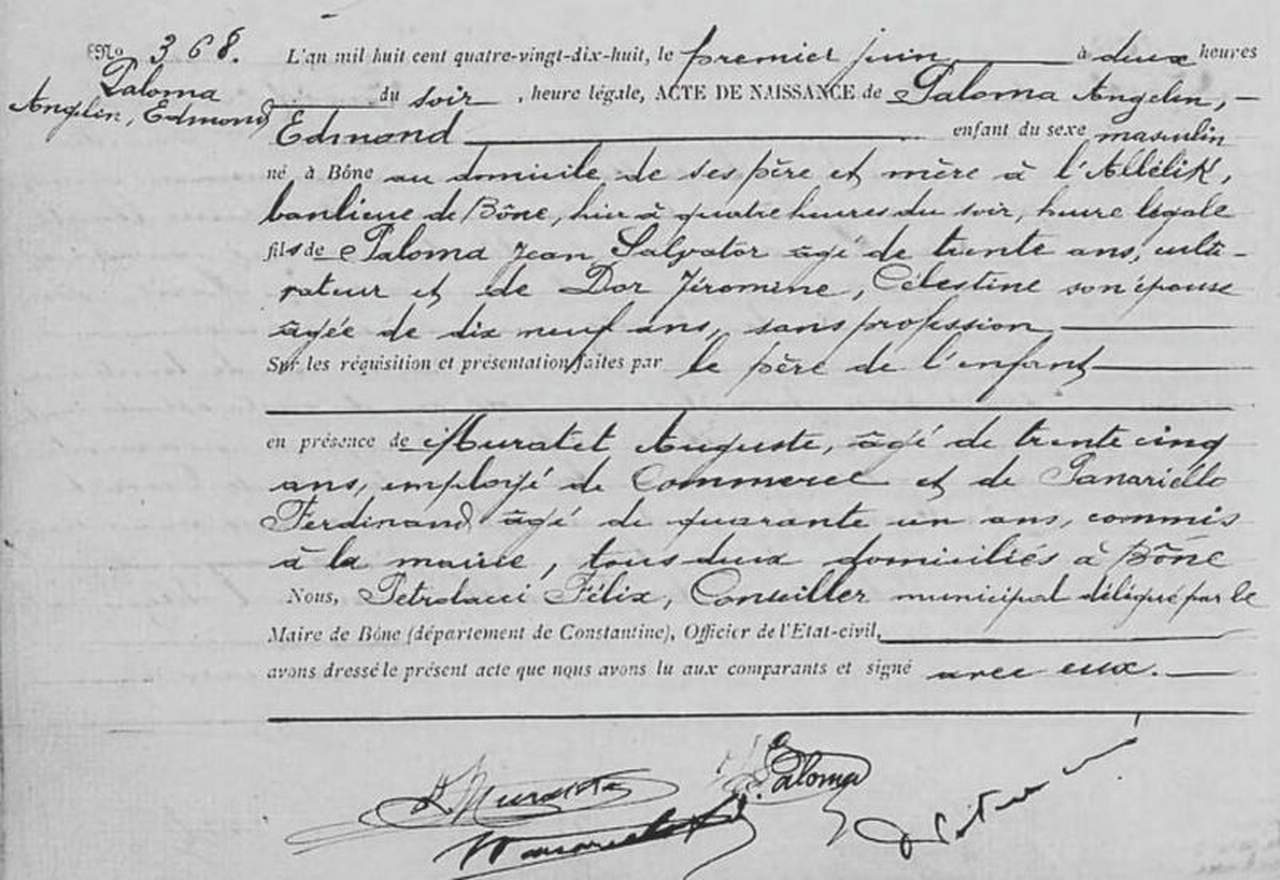 No 368.
Paloma
Angelin, Edmond
L'an mil huit cent quatre-vingt-dix-huit, le premier juin à deux heures
du soir, heure légale, ACTE DE NAISSANCE de Paloma Angelin,
Edmond enfant du sexe masculin
né à Bône au domicile de ses père et mère à l'Allélik,
banlieue de Bône, hier à quatre heures du soir, heure légale
fils de Paloma Jean Salvator âgé de trente ans, culti-
vateur et de Dor Jéromine, Célestine son épouse
âgée de dix neuf ans, sans profession
Sur les réquisition et présentation faites par le père de l'enfant
en présence de Muratet Auguste, âgé de trente cinq
ans, employé de Commerce et de Panariello
Ferdinand âgé de quarante un ans, commis
à la mairie, tous deux domiciliés à Bône
Nous, Petrolacci Félix, Conseiller municipal délégué par le
Maire de Bône (département de Constantine), Officier de l'Etat-civil,
avons dressé le présent acte que nous avons lu aux comparants et signé avec eux.
A. Muratet
Paloma